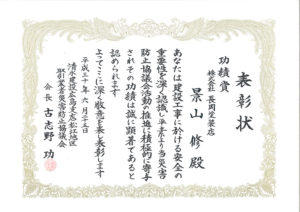 表彰状
功績賞
株式会社 長岡塗装店
景山 修 殿
あなたは建設工事に於ける安全の
重要性を深く認識し平素より当災害
防止協議会活動の推進に積極的に寄与
されその功績は誠に顕著であると
認められます
よってここに深く敬意を表し表彰します
平成三十年六月二十五日
清水建設広島支店松江地区
取引業者災害防止協議会
会長 古志野 功